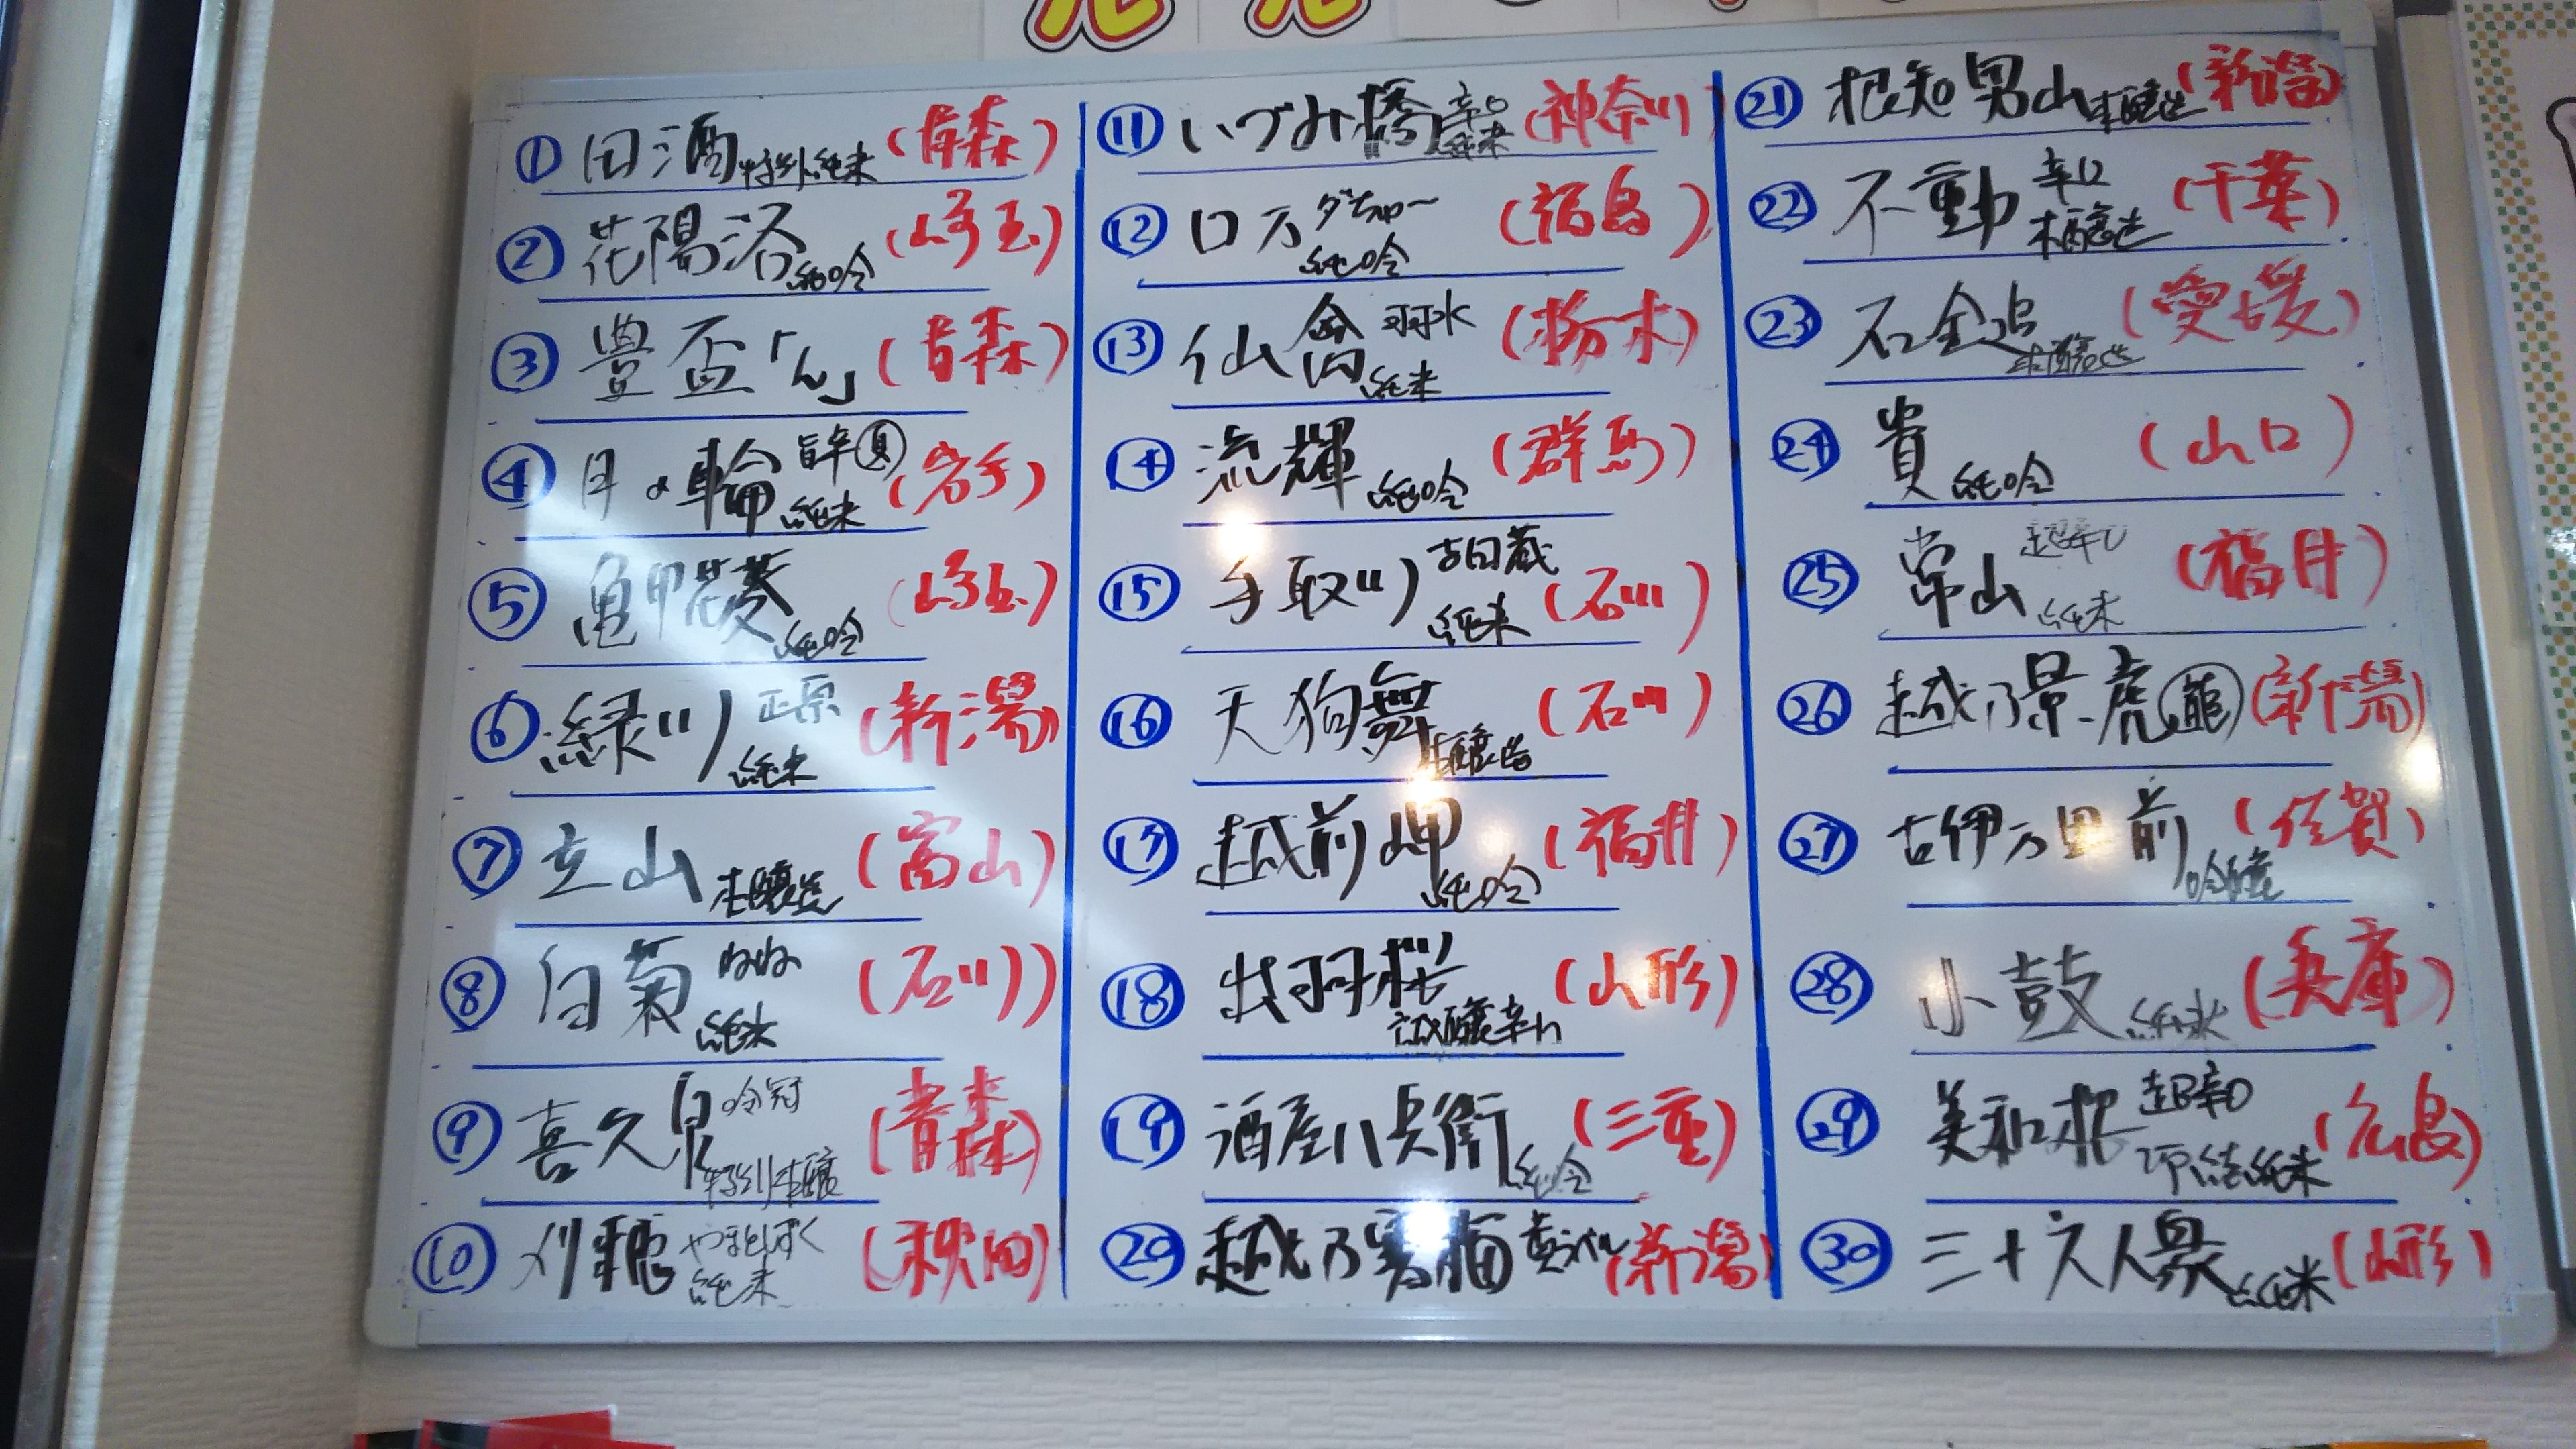 ① 田酒 特別純米 (青森)
② 花陽浴 純吟 (埼玉)
③ 豊盃「ん」 (青森)
④ 月の輪 旨辛 夏 純米 (岩手)
⑤ 亀甲花菱 純吟 (埼玉)
⑥ 緑川 正宗 純米 (新潟)
⑦ 立山 本醸造 (富山)
⑧ 白菊 ねね 純米 (石川)
⑨ 喜久泉 吟冠 特別本醸 (青森)
⑩ 刈穂 やまとしずく 純米 (秋田)
⑪ いづみ橋 辛口 純米 (神奈川)
⑫ ロ万 ダぢゅー 純吟 (福島)
⑬ 仙禽 羽水 純米 (栃木)
⑭ 流輝 純吟 (群馬)
⑮ 手取川 吉田蔵 純米 (石川)
⑯ 天狗舞 本醸造 (石川)
⑰ 越前岬 純吟 (福井)
⑱ 出羽桜 本醸辛口 (山形)
⑲ 酒屋八兵衛 純吟 (三重)
⑳ 越乃寒梅 (新潟)
㉑ 根知男山 本醸造 (新潟)
㉒ 不動 辛口 本醸造 (千葉)
㉓ 石鎚 本醸造 (愛媛)
㉔ 貴 純吟 (山口)
㉕ 常山 超辛口 純米 (福井)
㉖ 越乃景虎 龍 (新潟)
㉗ 古伊万里 前 吟醸 (佐賀)
㉘ 小鼓 純米 (兵庫)
㉙ 美和桜 超辛口 純米 (広島)
㉚ 三十六人衆 純米 (山形)